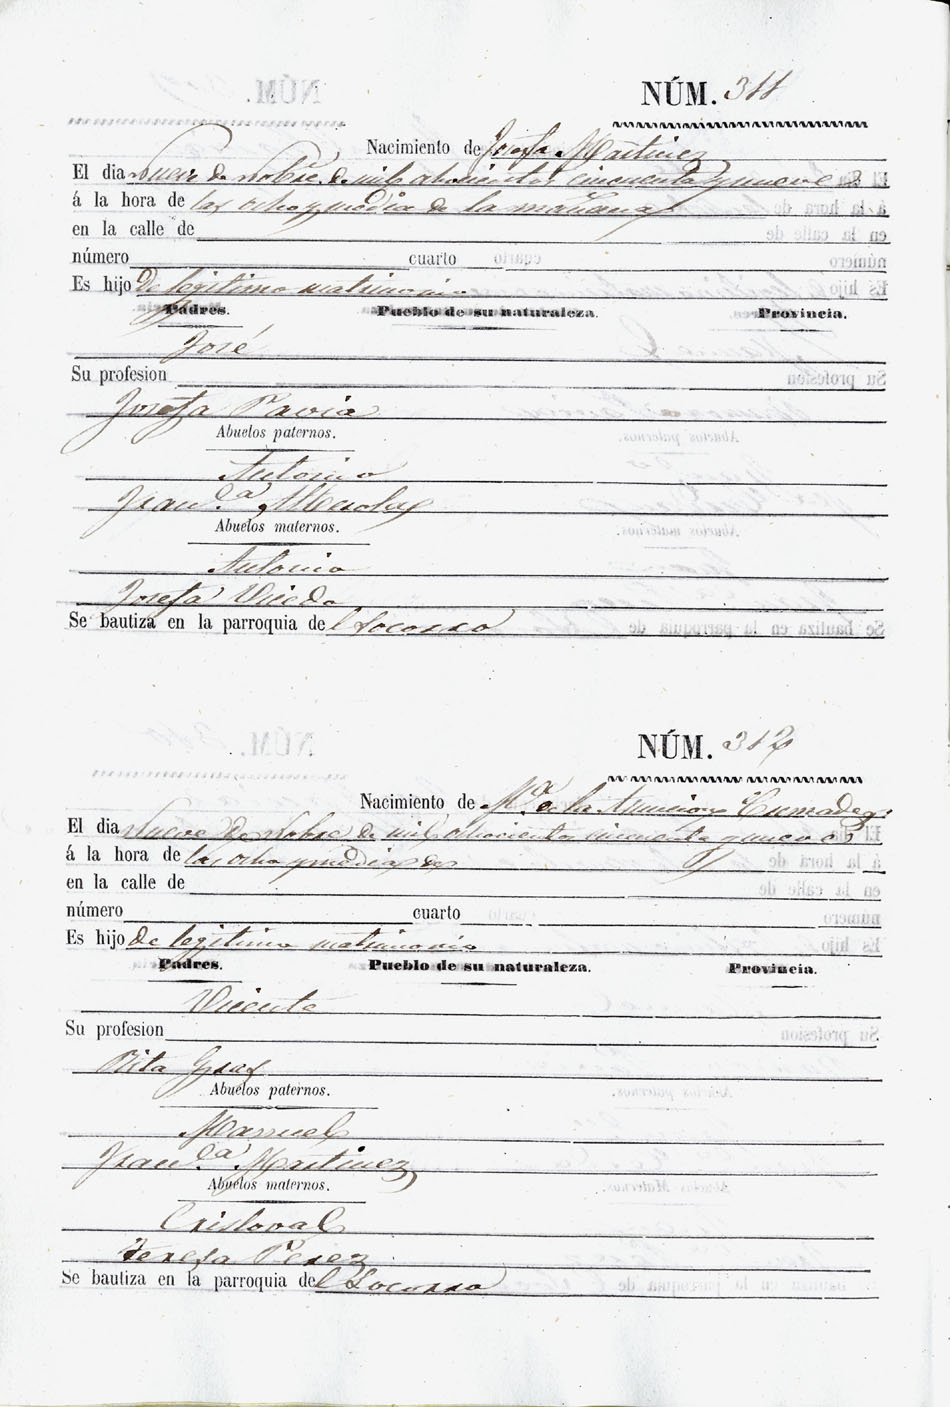 NÚM. 311
Nacimiento de Josefa Martinez
El dia Nueve de Nobre. de mil ochocientos cincuenta y nueve
á la hora de las ocho y media de la mañana
en la calle de
número cuarto
Es hijo de legitimo matrimonio
Padres. Pueblo de su naturaleza. Provincia.
José
Su profesion
Josefa Pavia
Abuelos paternos.
Antonio
Franca.
Abuelos maternos.
Antonio
Josefa
Se bautiza en la parroquia del Socorro
NÚM. 312
Nacimiento de Ma. de la
El dia Nueve de Nobre de mil ochocientos cincuenta y nueve
á la hora de las ocho y media de
en la calle de
número cuarto
Es hijo de legitimo matrimonio
Padres. Pueblo de su naturaleza. Provincia.
Vicente
Su profesion
Rita Grau
Abuelos paternos.
Manuel
Franca. Martinez
Abuelos maternos.
Cristoval
Teresa Perez
Se bautiza en la parroquia del Socorro